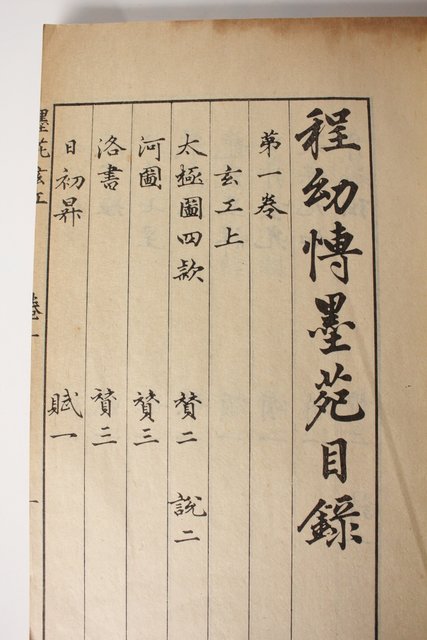 程幼博墨苑目錄
第一卷
玄工上
太極圖四款 贊二 說二
河圖 贊三
洛書 贊三
日初昇 賦一
墨苑玄工 卷一 一